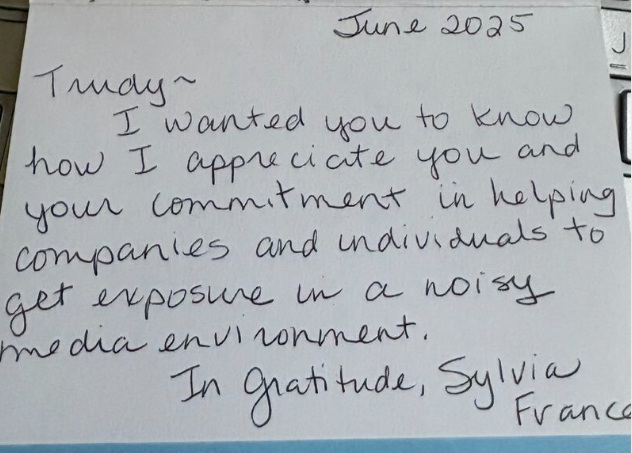 June 2025
Trudy~
I wanted you to know
how I appreciate you and
your commitment in helping
companies and individuals to
get exposure in a noisy
media environment.
In gratitude, Sylvia
France
J